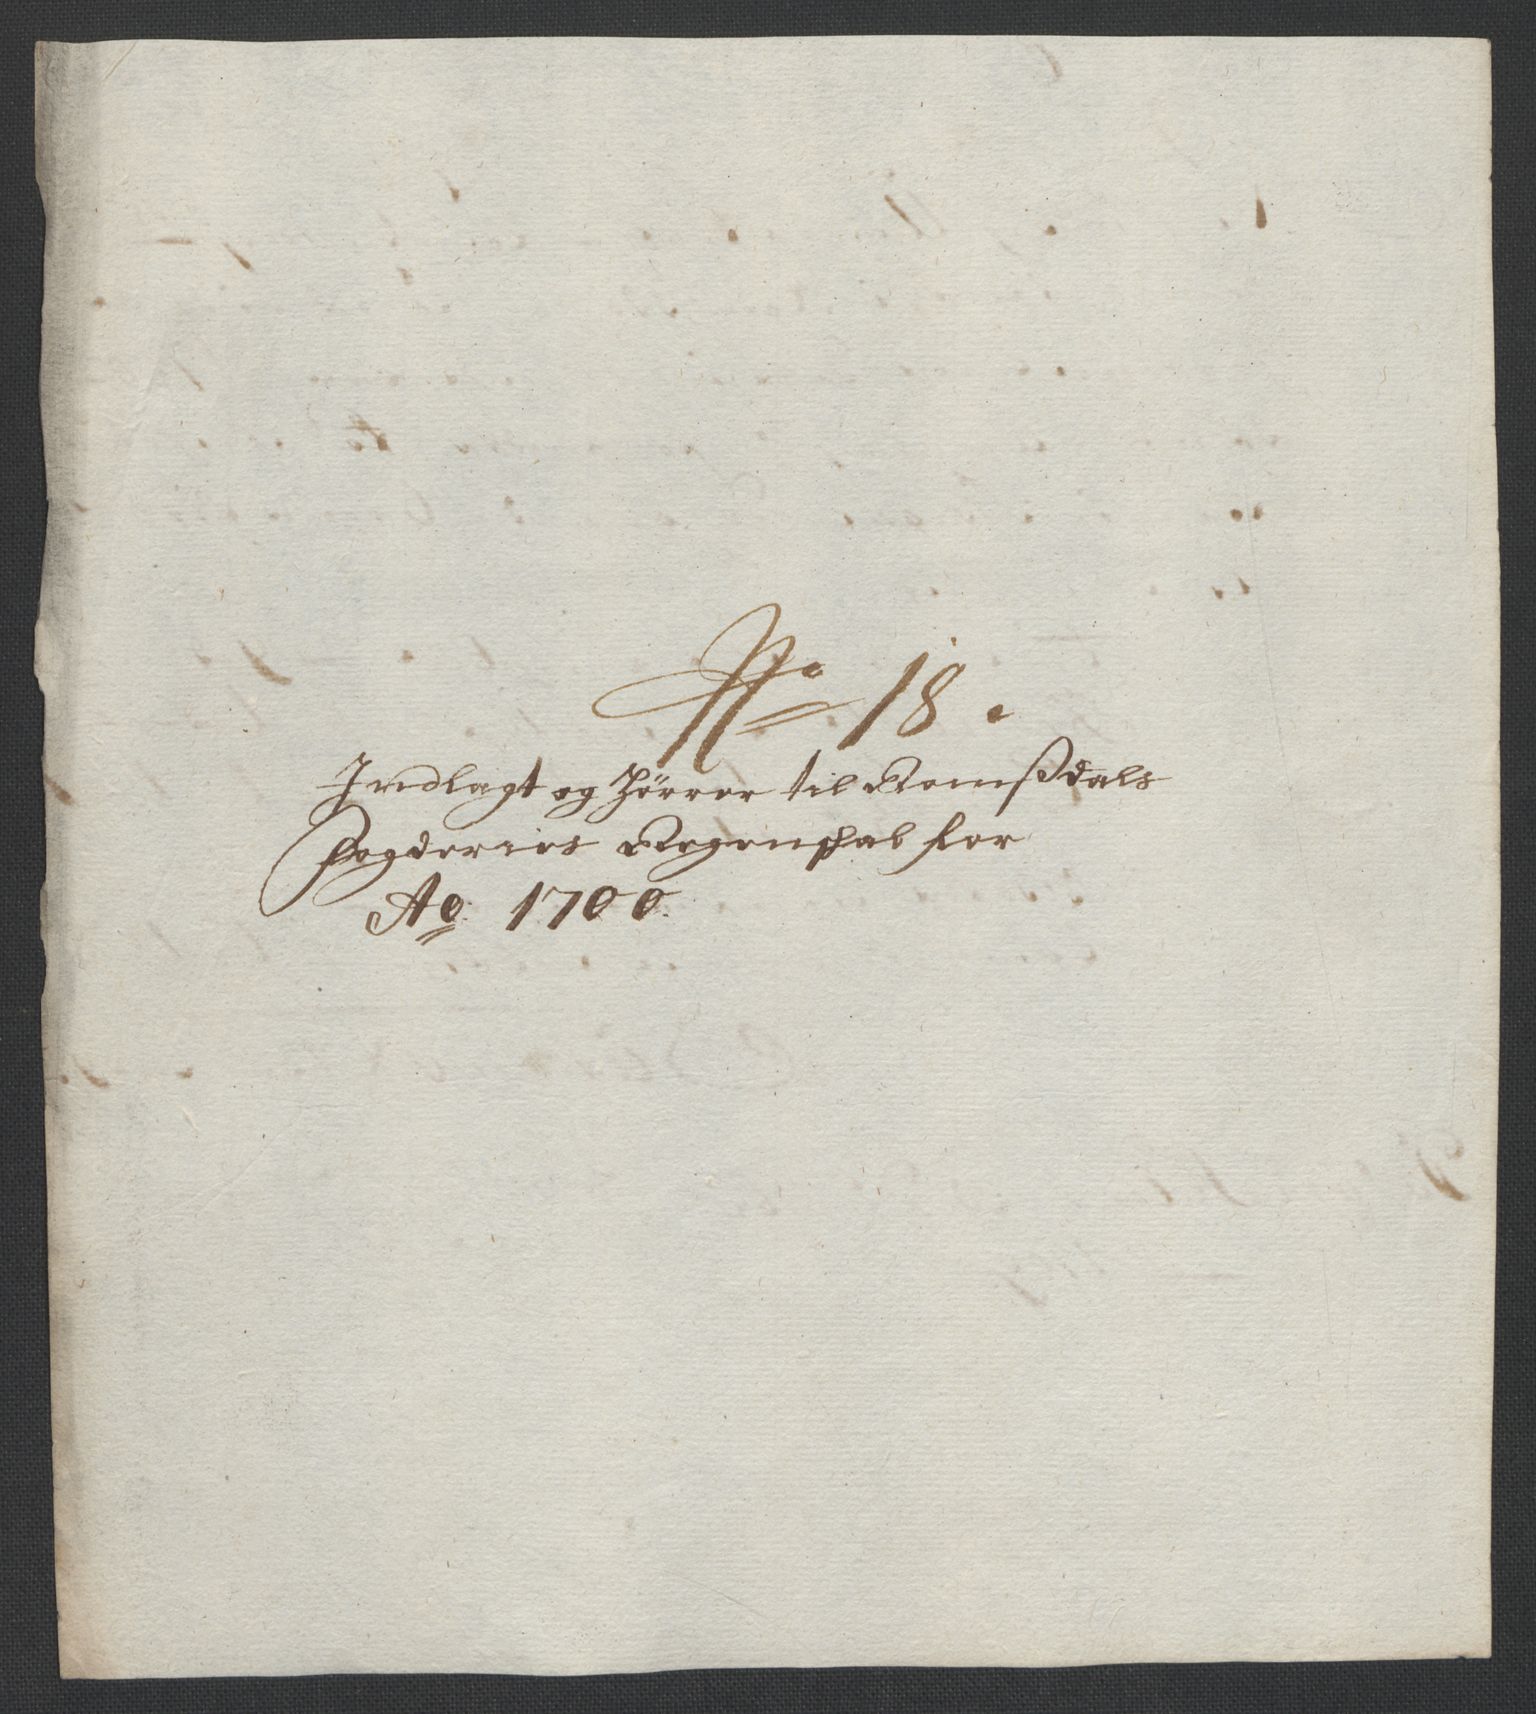 No 18.
Indlagt og hörrer til Romßdals
fogderies Regenskab for
Ao 1700.